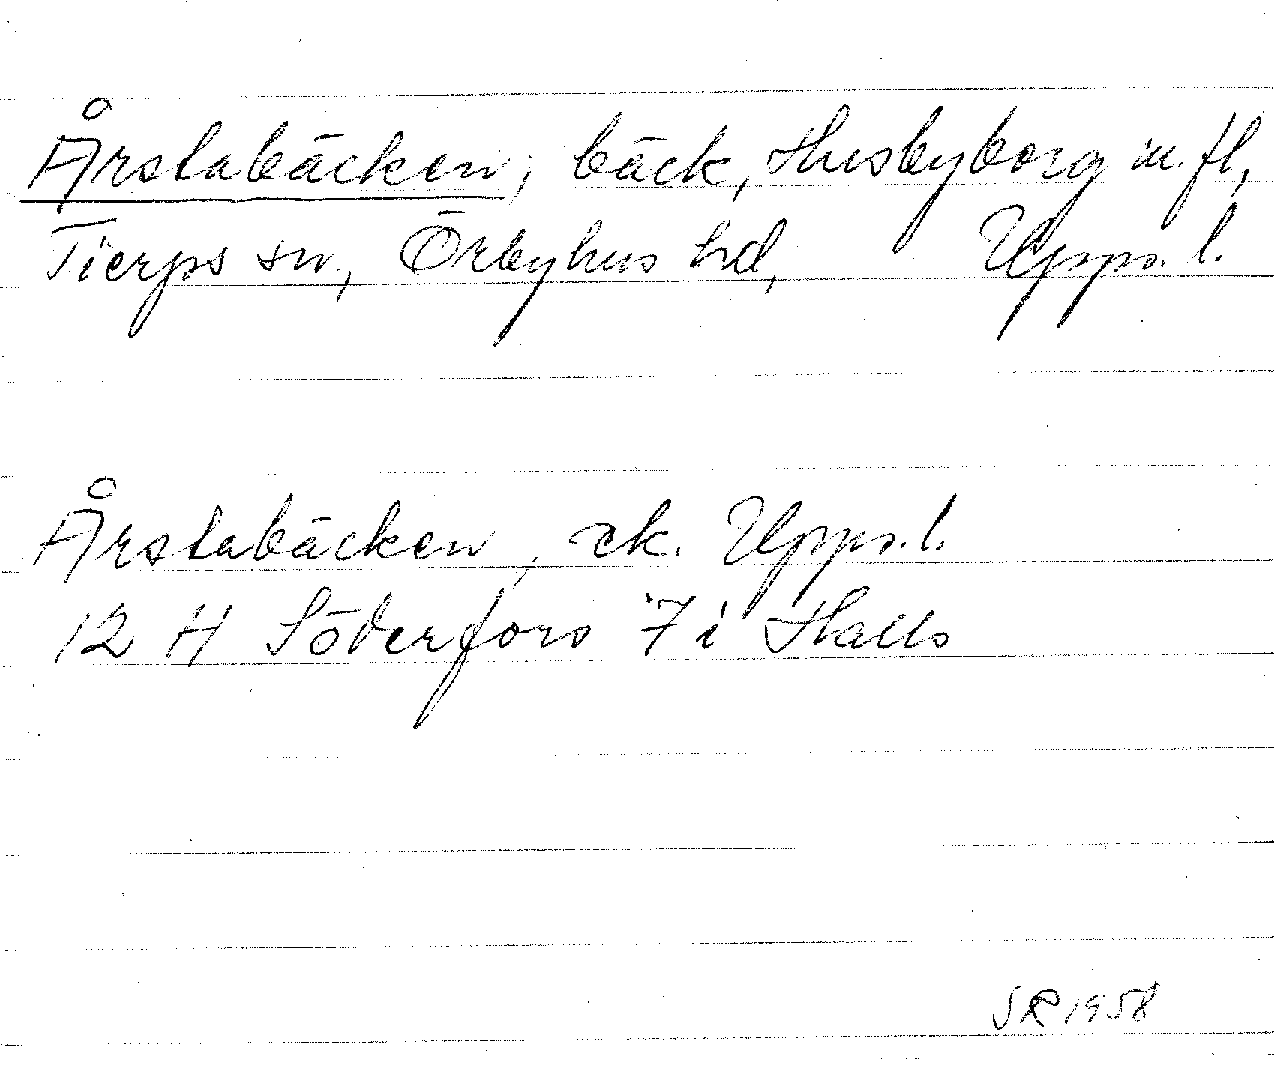 Årstabäcken, bäck, Husbyborg m.fl,
Tierps sn, Örbyhus hd, Upps. l.
Årstabäcken, ek. Upps. l.
12 H Söderfors 7 i Halls
SR 1958